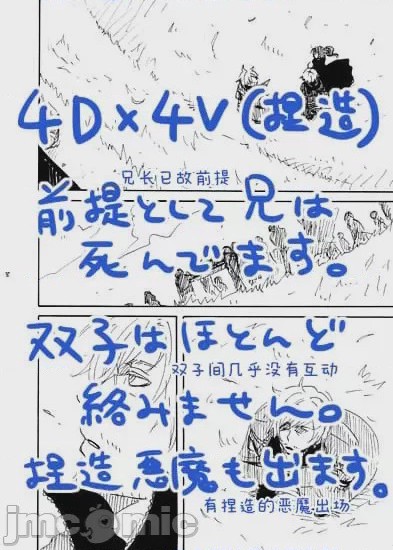 4D×4V(捏造)
兄长已故前提
前提として兄は
死んでます。
双子はほとんど
双子间几乎没有互动
絡みません。
捏造悪魔も出ます。
有捏造的恶魔出场
jmcomic